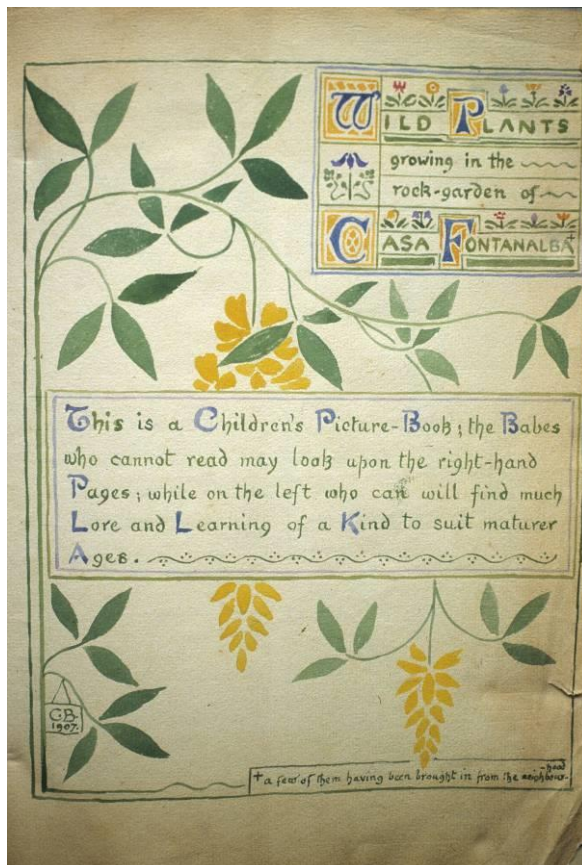 WILD PLANTS
growing in the
rock-garden of
CASA FONTANALBA+
This is a Children's Picture-Book; the Babes
who cannot read may look upon the right-hand
Pages; while on the left who can will find much
Lore and Learning of a Kind to suit maturer
Ages.
C.B.
1907.
+ a few of them having been brought in from the neighbour-
-hood